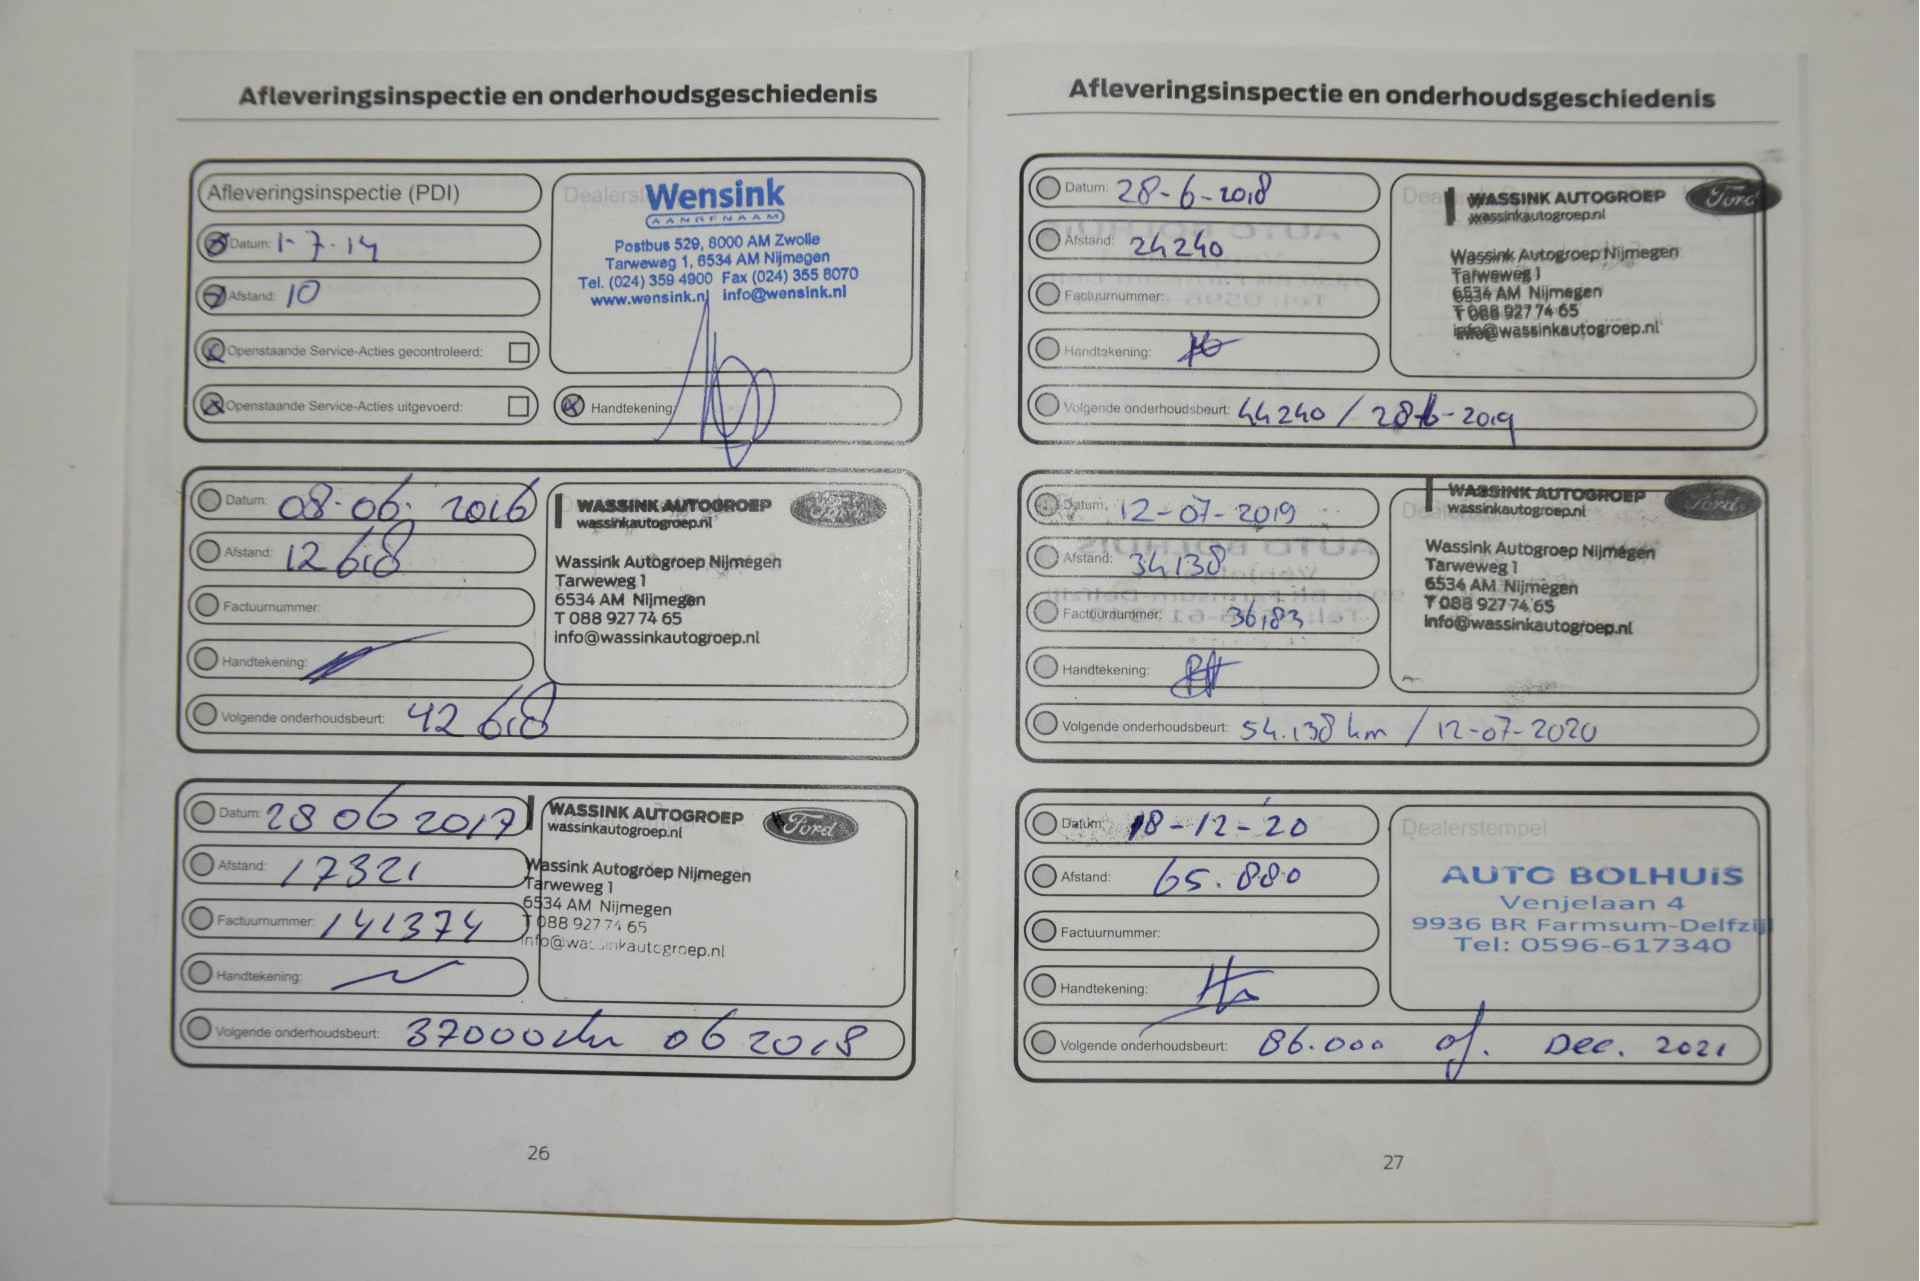 Afleveringsinspectie en onderhoudsgeschiedenis
Afleveringsinspectie (PDI)
Datum: 1-7-14
Afstand: 10
Openstaande Service-Acties gecontroleerd:
Openstaande Service-Acties uitgevoerd:
Wensink
AANGENAAM
Postbus 529, 8000 AM Zwolle
Tarweweg 1, 6534 AM Nijmegen
Tel. (024) 359 4900 Fax (024) 355 8070
www.wensink.nl info@wensink.nl
Handtekening:
Datum: 08-06-2016
Afstand: 12618
Factuurnummer:
Handtekening:
Volgende onderhoudsbeurt: 42618
WASSINK AUTOGROEP
wassinkautogroep.nl
Wassink Autogroep Nijmegen
Tarweweg 1
6534 AM Nijmegen
T 088 927 74 65
info@wassinkautogroep.nl
Datum: 28 06 2017
Afstand: 17321
Factuurnummer: 141374
Handtekening:
Volgende onderhoudsbeurt: 37000 06 2018
WASSINK AUTOGROEP
wassinkautogroep.nl
Ford
Wassink Autogroep Nijmegen
Tarweweg 1
6534 AM Nijmegen
T 088 927 74 65
info@wassinkautogroep.nl
26
Afleveringsinspectie en onderhoudsgeschiedenis
Datum: 28-6-2018
Afstand: 24240
Factuurnummer:
Handtekening:
Volgende onderhoudsbeurt: 44240 / 28-6-2019
WASSINK AUTOGROEP
wassinkautogroep.nl
Ford
Wassink Autogroep Nijmegen
Tarweweg 1
6534 AM Nijmegen
T 088 927 74 65
info@wassinkautogroep.nl
Datum: 12-07-2019
Afstand: 34138
Factuurnummer:
Handtekening:
Volgende onderhoudsbeurt: 54.138 km / 12-07-2020
WASSINK AUTOGROEP
wassinkautogroep.nl
Ford
Wassink Autogroep Nijmegen
Tarweweg 1
6534 AM Nijmegen
T 088 927 74 65
info@wassinkautogroep.nl
Datum: 18-12-20
Afstand: 65.880
Factuurnummer:
Handtekening:
Volgende onderhoudsbeurt: 86.000 of. Dec. 2021
Dealerstempel
AUTO BOLHUIS
Venjelaan 4
9936 BR Farmsum-Delfzijl
Tel: 0596-617340
27